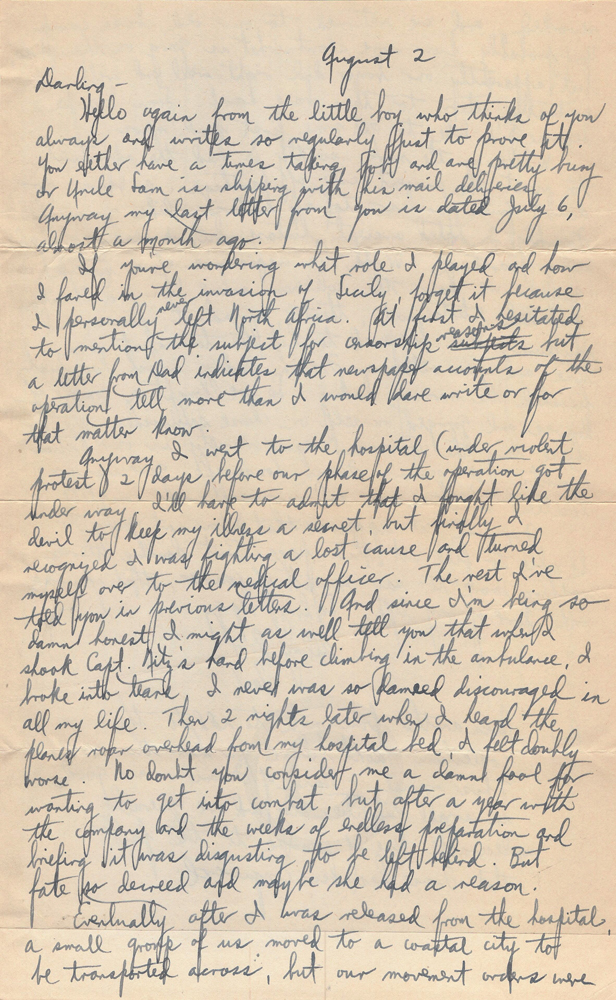 August 2
Darling —
Hello again from the little boy who thinks of you
always and writes so regularly just to prove it.
You either have a times taking job and are pretty busy
or Uncle Sam is slipping with his mail deliveries
Anyway my last letter from you is dated July 6,
almost a month ago.
If you're wondering what role I played and how
I fared in the invasion of Sicily, forget it because
I personally never left North Africa. At first I hesitated
to mention the subject for censorship reasons subjects but
a letter from Dad indicates that newspaper accounts of the
operation tell more than I would dare write or for
that matter know.
Anyway I went to the hospital (under violent
protest) 2 days before our phase of the operation got
under way. I'll have to admit that I fought like the
devil to keep my illness a secret, but finally I
recognized I was fighting a lost cause and turned
myself over to the medical officer. The rest I've
told you in previous letters. And since I'm being so
damn honest, I might as well tell you that when I
shook Capt. hand before climbing in the ambulance, I
broke into tears. I never was so damned discouraged in
all my life. Then 2 nights later when I heard the
planes roar overhead from my hospital bed, I felt doubly
worse. No doubt you consider me a damn fool for
wanting to get into combat, but after a year with
the company and the weeks of endless preparation and
briefing it was disgusting to be left behind. But
fate so decreed and maybe she had a reason.
Eventually after I was released from the hospital,
a small group of us moved to a coastal city to
be transported across, but our movement orders were